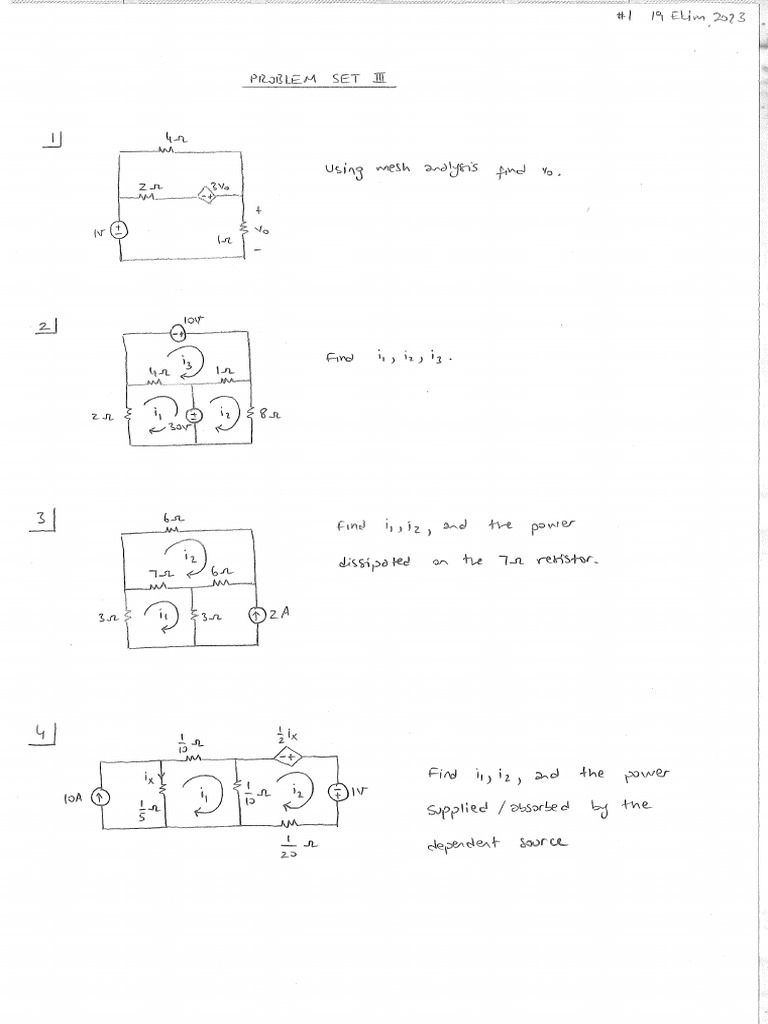 #1 19 Ekim, 2023
PROBLEM SET III
1|
4Ω
2Ω
3v₀
- +
1V
+
-
1Ω
+
v₀
-
Using mesh analysis find v₀.
2|
10V
- +
i₃
4Ω
1Ω
2Ω
i₁
30V
+
-
i₂
8Ω
Find i₁, i₂, i₃.
3|
6Ω
i₂
7Ω
6Ω
3Ω
i₁
3Ω
2A
Find i₁, i₂, and the power
dissipated on the 7Ω resistor.
4|
1/10 Ω
1/2 iₓ
- +
10A
iₓ
1/5 Ω
i₁
1/10 Ω
i₂
-
+
1V
1/20 Ω
Find i₁, i₂, and the power
supplied / absorbed by the
dependent source